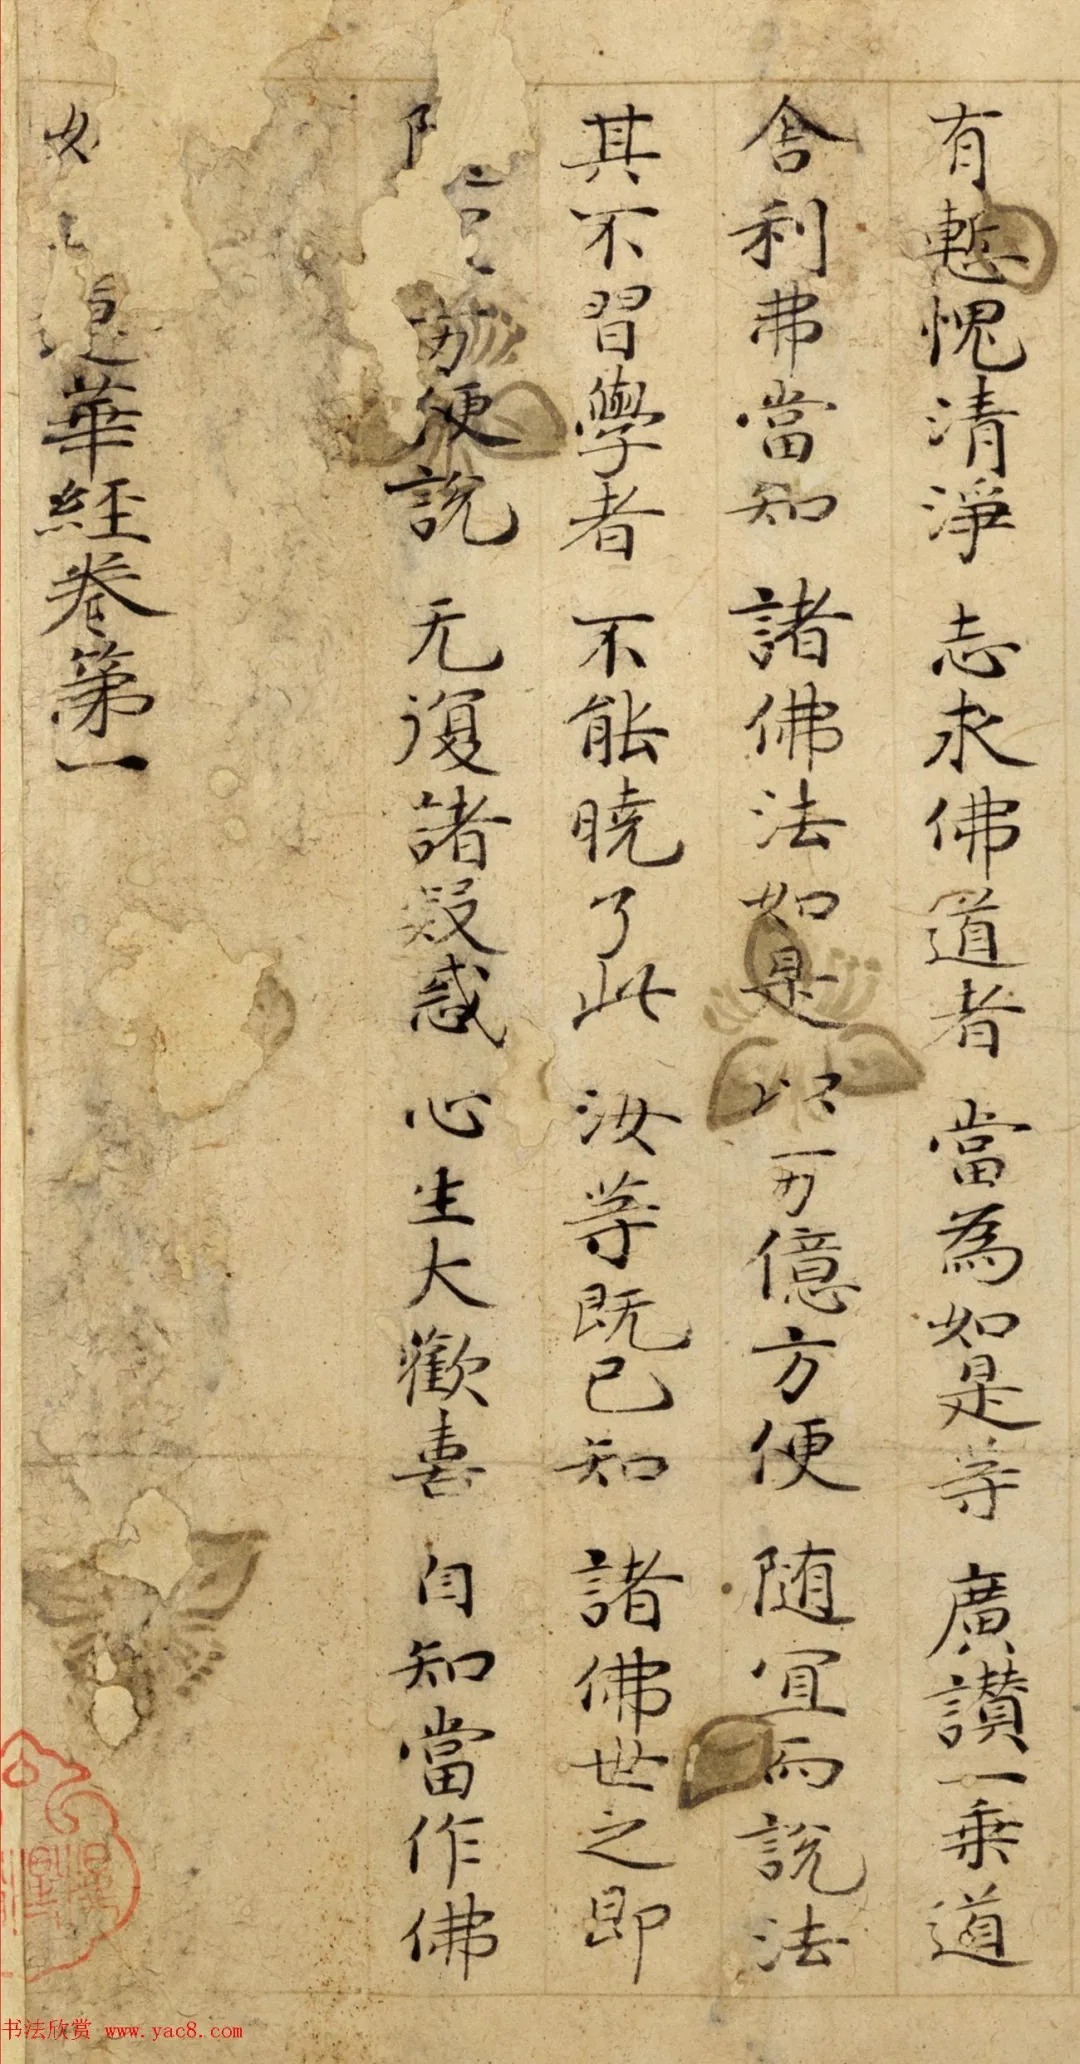 有慙愧清淨 志求佛道者 當為如是等 廣讃一乗道
舎利弗當知 諸佛法如是 以万億方便 随冝而說法
其不習學者 不能曉了此 汝等既已知 諸佛世之即
方便說 无復諸疑惑 心生大歡喜 自知當作佛
華經卷第一
书法欣赏 www.yac8.com